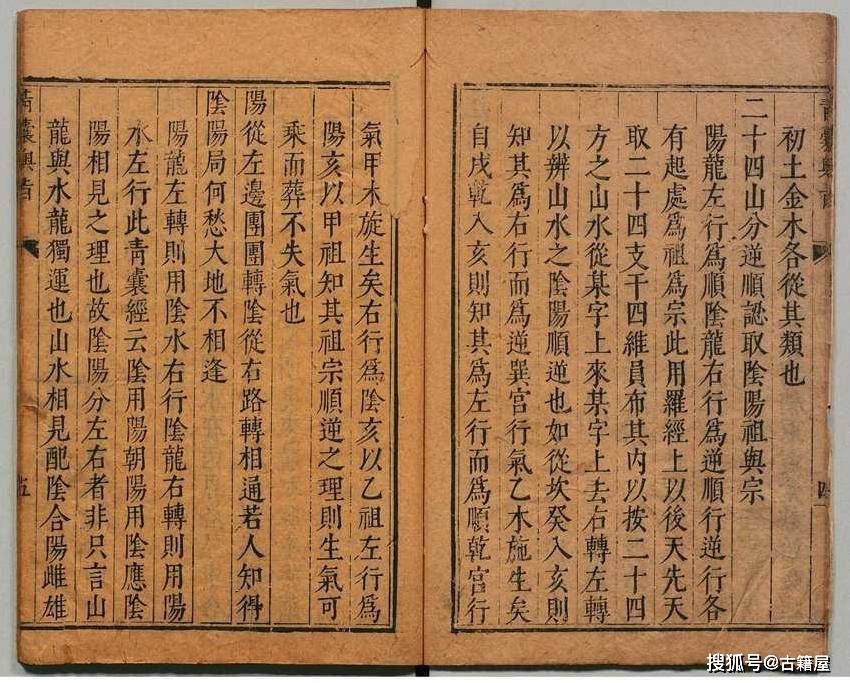 初土金木各從其類也
二十四山分逆順認取陰陽祖與宗
陽龍左行爲順陰龍右行爲逆順行逆行各
有起處爲祖爲宗此用羅經上以後天先天
取二十四支干四維員布其內以按二十四
方之山水從某字上來某字上去右轉左轉
以辨山水之陰陽順逆也如從坎癸入亥則
知其爲右行而爲逆巽宮行氣乙木施生矣
自戌乾入亥則知其爲左行而爲順乾宮行
四
氣甲木旋生矣右行爲陰亥以乙祖左行爲
陽亥以甲祖知其祖宗順逆之理則生氣可
乘而葬不失氣也
陽從左邊團團轉陰從右路轉相通若人知得
陰陽局何愁大地不相逢
陽龍左轉則用陰水右行陰龍右轉則用陽
水左行此青囊經云陰用陽朝陽用陰應陰
陽相見之理也故陰陽分左右者非只言山
龍與水龍獨運也山水相見配陰合陽雌雄
青囊奧旨
五
搜狐号@古籍屋